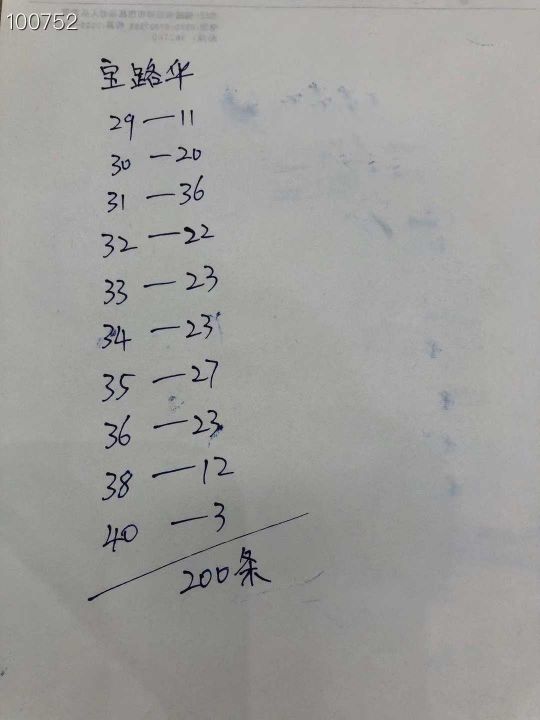 100752
宝路华
29—11
30—20
31—36
32—22
33—23
34—23
35—27
36—23
38—12
40—3
200条